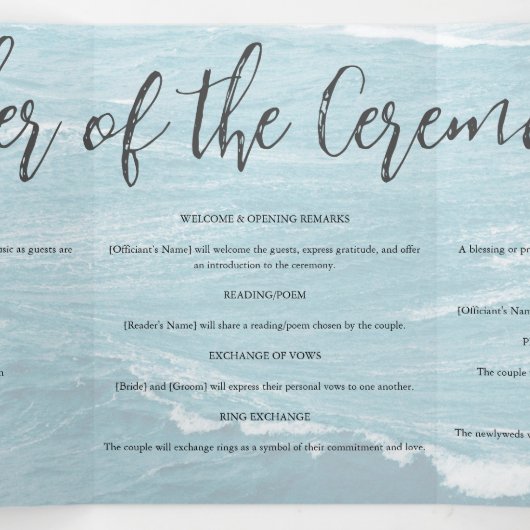 er of the Cerem
WELCOME & OPENING REMARKS
[Officiant's Name] will welcome the guests, express gratitude, and offer
an introduction to the ceremony.
READING/POEM
[Reader's Name] will share a reading/poem chosen by the couple.
EXCHANGE OF VOWS
[Bride] and [Groom] will express their personal vows to one another.
RING EXCHANGE
The couple will exchange rings as a symbol of their commitment and love.
as guests are
A blessing or
[Officiant's Name]
The couple
The newlyweds